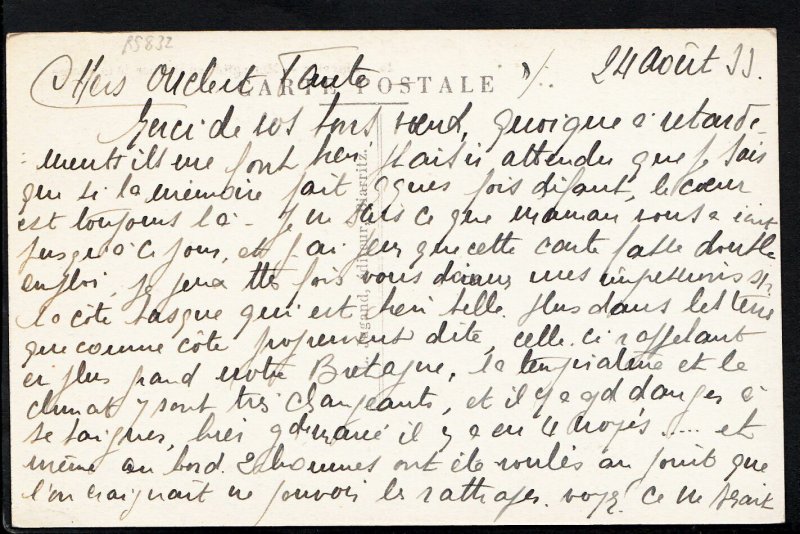 R5832
Chers Oncle et Tante 24 Août 33.
CARTE POSTALE
Merci de vos bons vœux, quoique à retarde-
ments ils me font bien plaisir attendu que je sais
que si la mémoire fait qques fois défaut, le cœur
est toujours là. Je ne sais ce que maman vous a écrit
jusqu'à ce jour, et j'ai peur que cette carte fasse double
emploi, je peux tte fois vous donner mes impressions sr
la côte basque qui est bien belle. plus dans les terres
que comme côte proprement dite, celle-ci rappelant
en plus grand notre Bretagne, la température et le
climat y sont très changeants, et il y a gd danger à
se baigner, hier gde marée il y a eu 4 noyés..... et
même au bord. 2 hommes ont été roulés au point que
l'on craignait ne pouvoir les rattraper. voyez ce ne serait
Jugand, éditeur, Biarritz.